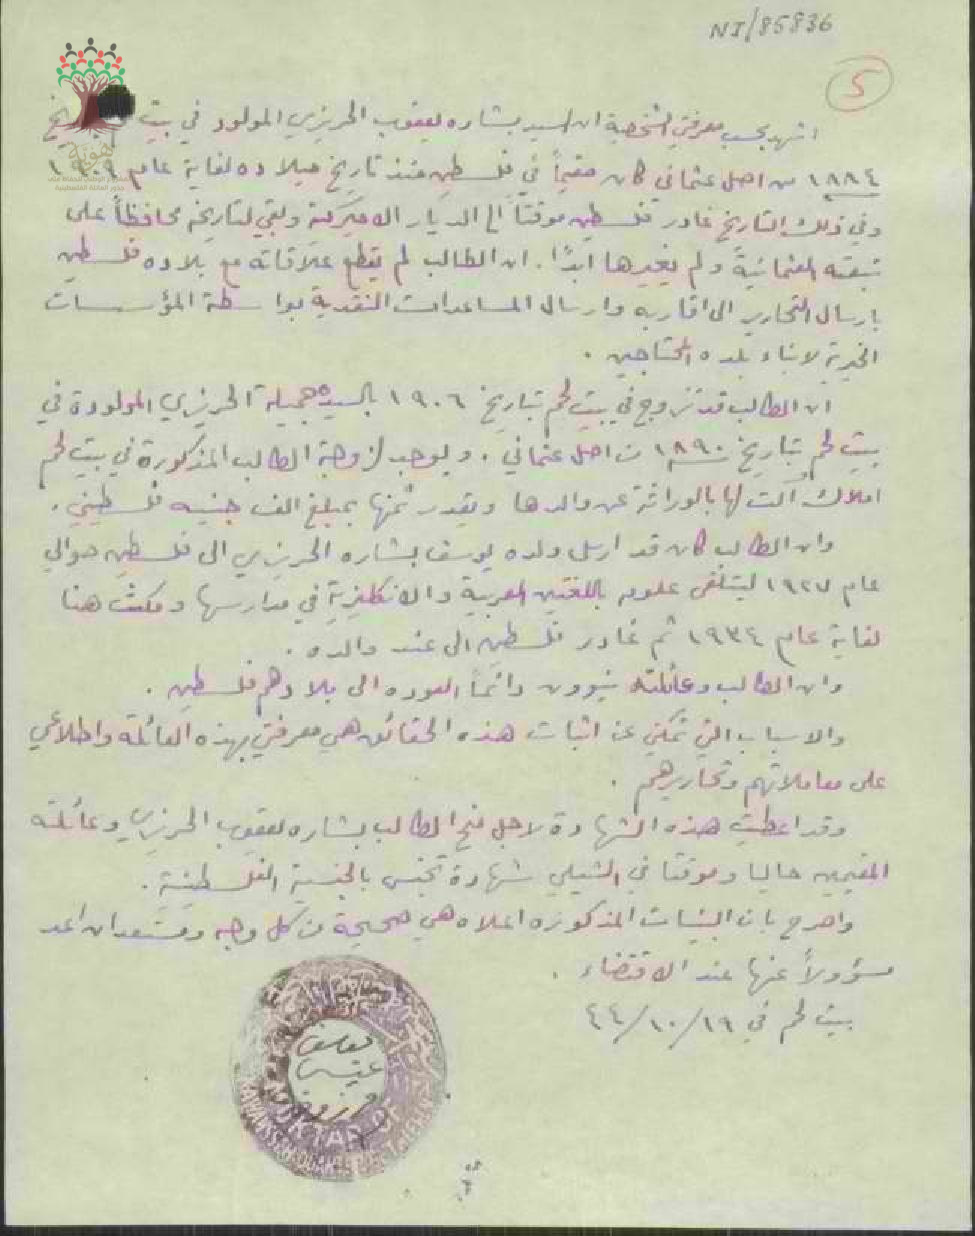 NI/85836
5
اشهد بحسب معرفتي الشخصية ان السيد بشاره يعقوب الحريزي المولود في بيت
١٨٨٤ من اصل عثماني كان مقيماً في فلسطين منذ تاريخ ميلاده لغاية عام ١٩٠٩
وفي ذلك التاريخ غادر فلسطين موقتاً الى الديار الاميركية وبقي لتاريخه محافظاً على
تبعته العثمانية ولم يغيرها ابداً. ان الطالب لم يقطع علاقاته مع بلاده فلسطين
بارسال التحارير الى اقاربه وارسال المساعدات النقدية بواسطة المؤسسات
الخيرية لابناء بلده المحتاجين .
ان الطالب قد تزوج في بيت لحم بتاريخ ١٩٠٦ بالسيده جميلة الحريزي المولودة في
بيت لحم بتاريخ ١٨٩٠ من اصل عثماني . ويوجد لزوجة الطالب المذكورة في بيت لحم
املاك آلت لها بالوراثة عن والدها ويقدر ثمنها بمبلغ الف جنيه فلسطيني .
وان الطالب كان قد ارسل ولده يوسف بشاره الحريزي الى فلسطين حوالي
عام ١٩٢٧ ليتلقى علومه باللغتين العربية والانكليزية في مدارسها ومكث هنا
لغاية عام ١٩٣٤ ثم غادر فلسطين الى عند والده .
وان الطالب وعائلته ينوون دائماً العوده الى بلادهم فلسطين .
والاسباب التي تمكني من اثبات هذه الحقائق هي معرفتي بهذه العائلة واطلاعي
على معاملاتهم وتحاريرهم .
وقد اعطيت هذه الشهادة لاجل منح الطالب بشاره يعقوب الحريزي وعائلته
المقيمين حاليا وموقتا في التشيلي شهادة تجنس بالجنسية الفلسطينية .
واصرح بان البينات المذكوره اعلاه هي صحيحة من كل وجه ومستعد ان اعد
مسؤولاً عنها عند الاقتضاء .
بيت لحم في ١٩/١٠/٤٤
MUKTAR OF